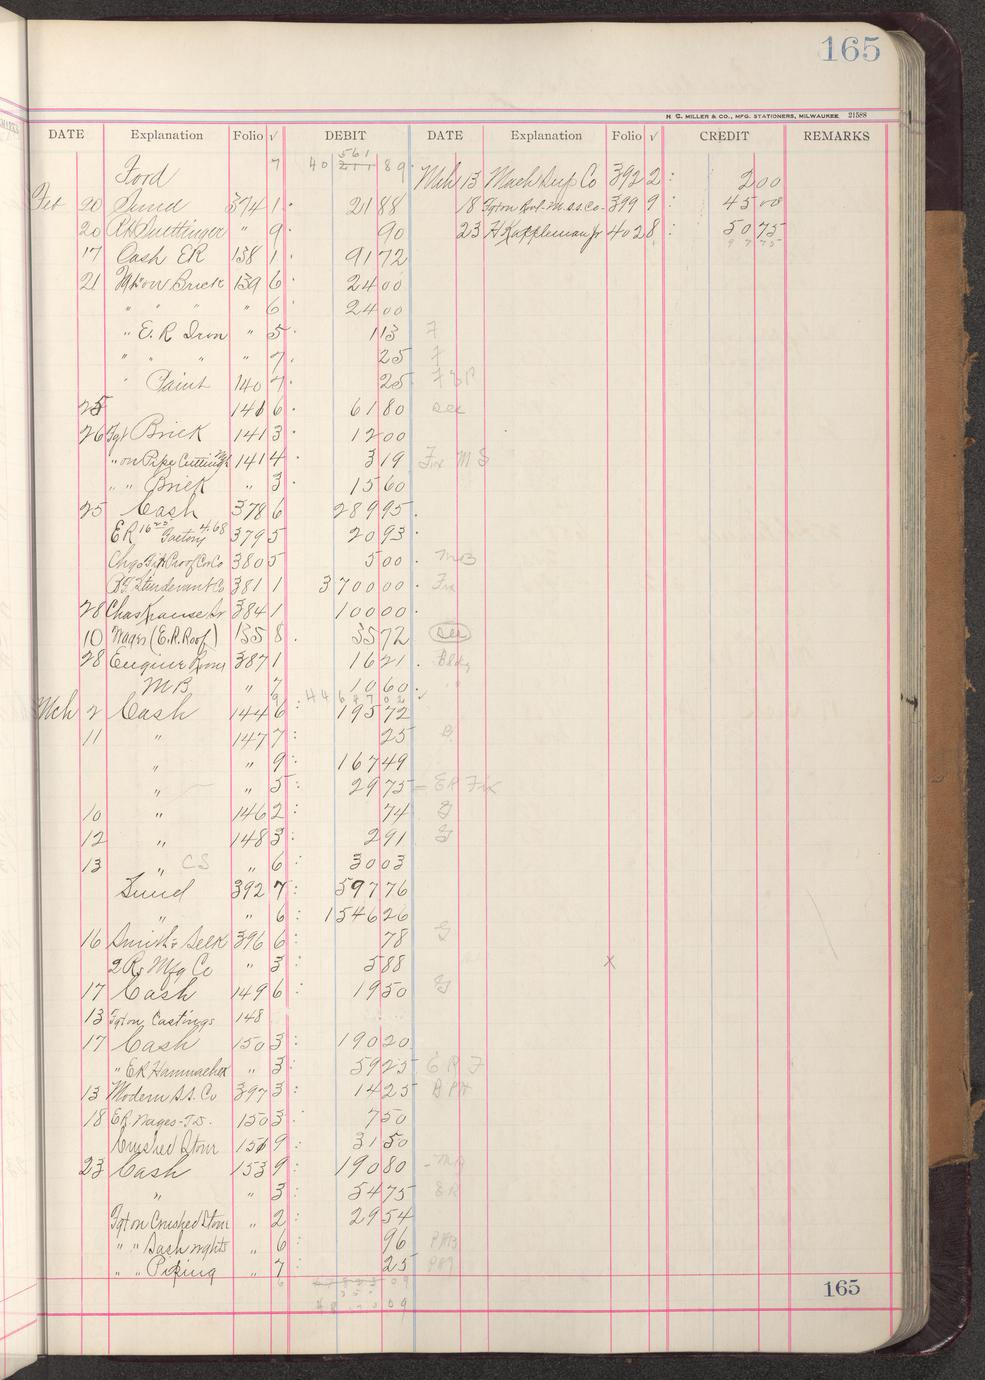 165
H. C. MILLER & CO., MFG. STATIONERS, MILWAUKEE 21588
DATE Explanation Folio √ DEBIT DATE Explanation Folio √ CREDIT REMARKS
561
Ford 7 40 211 89 Mch 13 Mach Sup Co 392 2 : 2 00
Feb 20 Sund 374 1 21 88 18 Fgt on Roof - M.S.S. Co - 399 9 : 45 00
20 " 9 90 23 H Kappleman Jr 402 8 : 50 75
17 Cash ER 138 1 91 72 97 75
21 on Brick 139 6 24 00
" " " 6 24 00
" E.R Iron " 5 1 13 F
" " " " 7 25 F
" Paint 140 7 25
25 140 6 61 80 Sec
26 Fgt Brick 141 3 12 00
" on Pipe Cutting 141 4 3 19 Fix M S
" " Brick " 3 15 60
25 Cash 378 6 289 95
ER Factory 4.68 379 5 20 93
380 5 5 00
B.F. Sturdevant Co 381 1 3700 00 Fix
28 Chas Krause Sr 384 1 100 00
10 Wages (E.R. Roof) 135 8 35 72
28 Engine Room 387 1 16 21 Bldg
M B " 7 10 60 "
9 4467 02 √
Mch 2 Cash 144 6 195 72
11 " 147 7 25
" " 9 : 167 49
" " 5 : 29 75 - ER Fix
10 " 146 2 : 74 G
12 " 148 3 : 2 91 G
13 " CS " 6 : 30 03
Sund 392 7 : 597 76
" " 6 : 1546 26
16 Smith & Selk 396 6 : 78 G
2 Rs Mfg Co " 3 : 5 88 x
17 Cash 149 6 : 19 50 G
13 Fgt on Castings 148
17 Cash 150 3 : 190 20
" ER Hammacher " 3 : 59 25 E R F
13 Modern S.S. Co 397 3 : 14 25
18 ER Wages - T.S. 150 3 : 7 50
Crushed Stone 151 9 : 31 50
23 Cash 153 9 : 190 80
" " 3 : 54 75 ER
Fgt on Crushed Stone " 2 : 29 54
" " Sash wghts " 6 : 96
" " Piping " 7 : 25
165